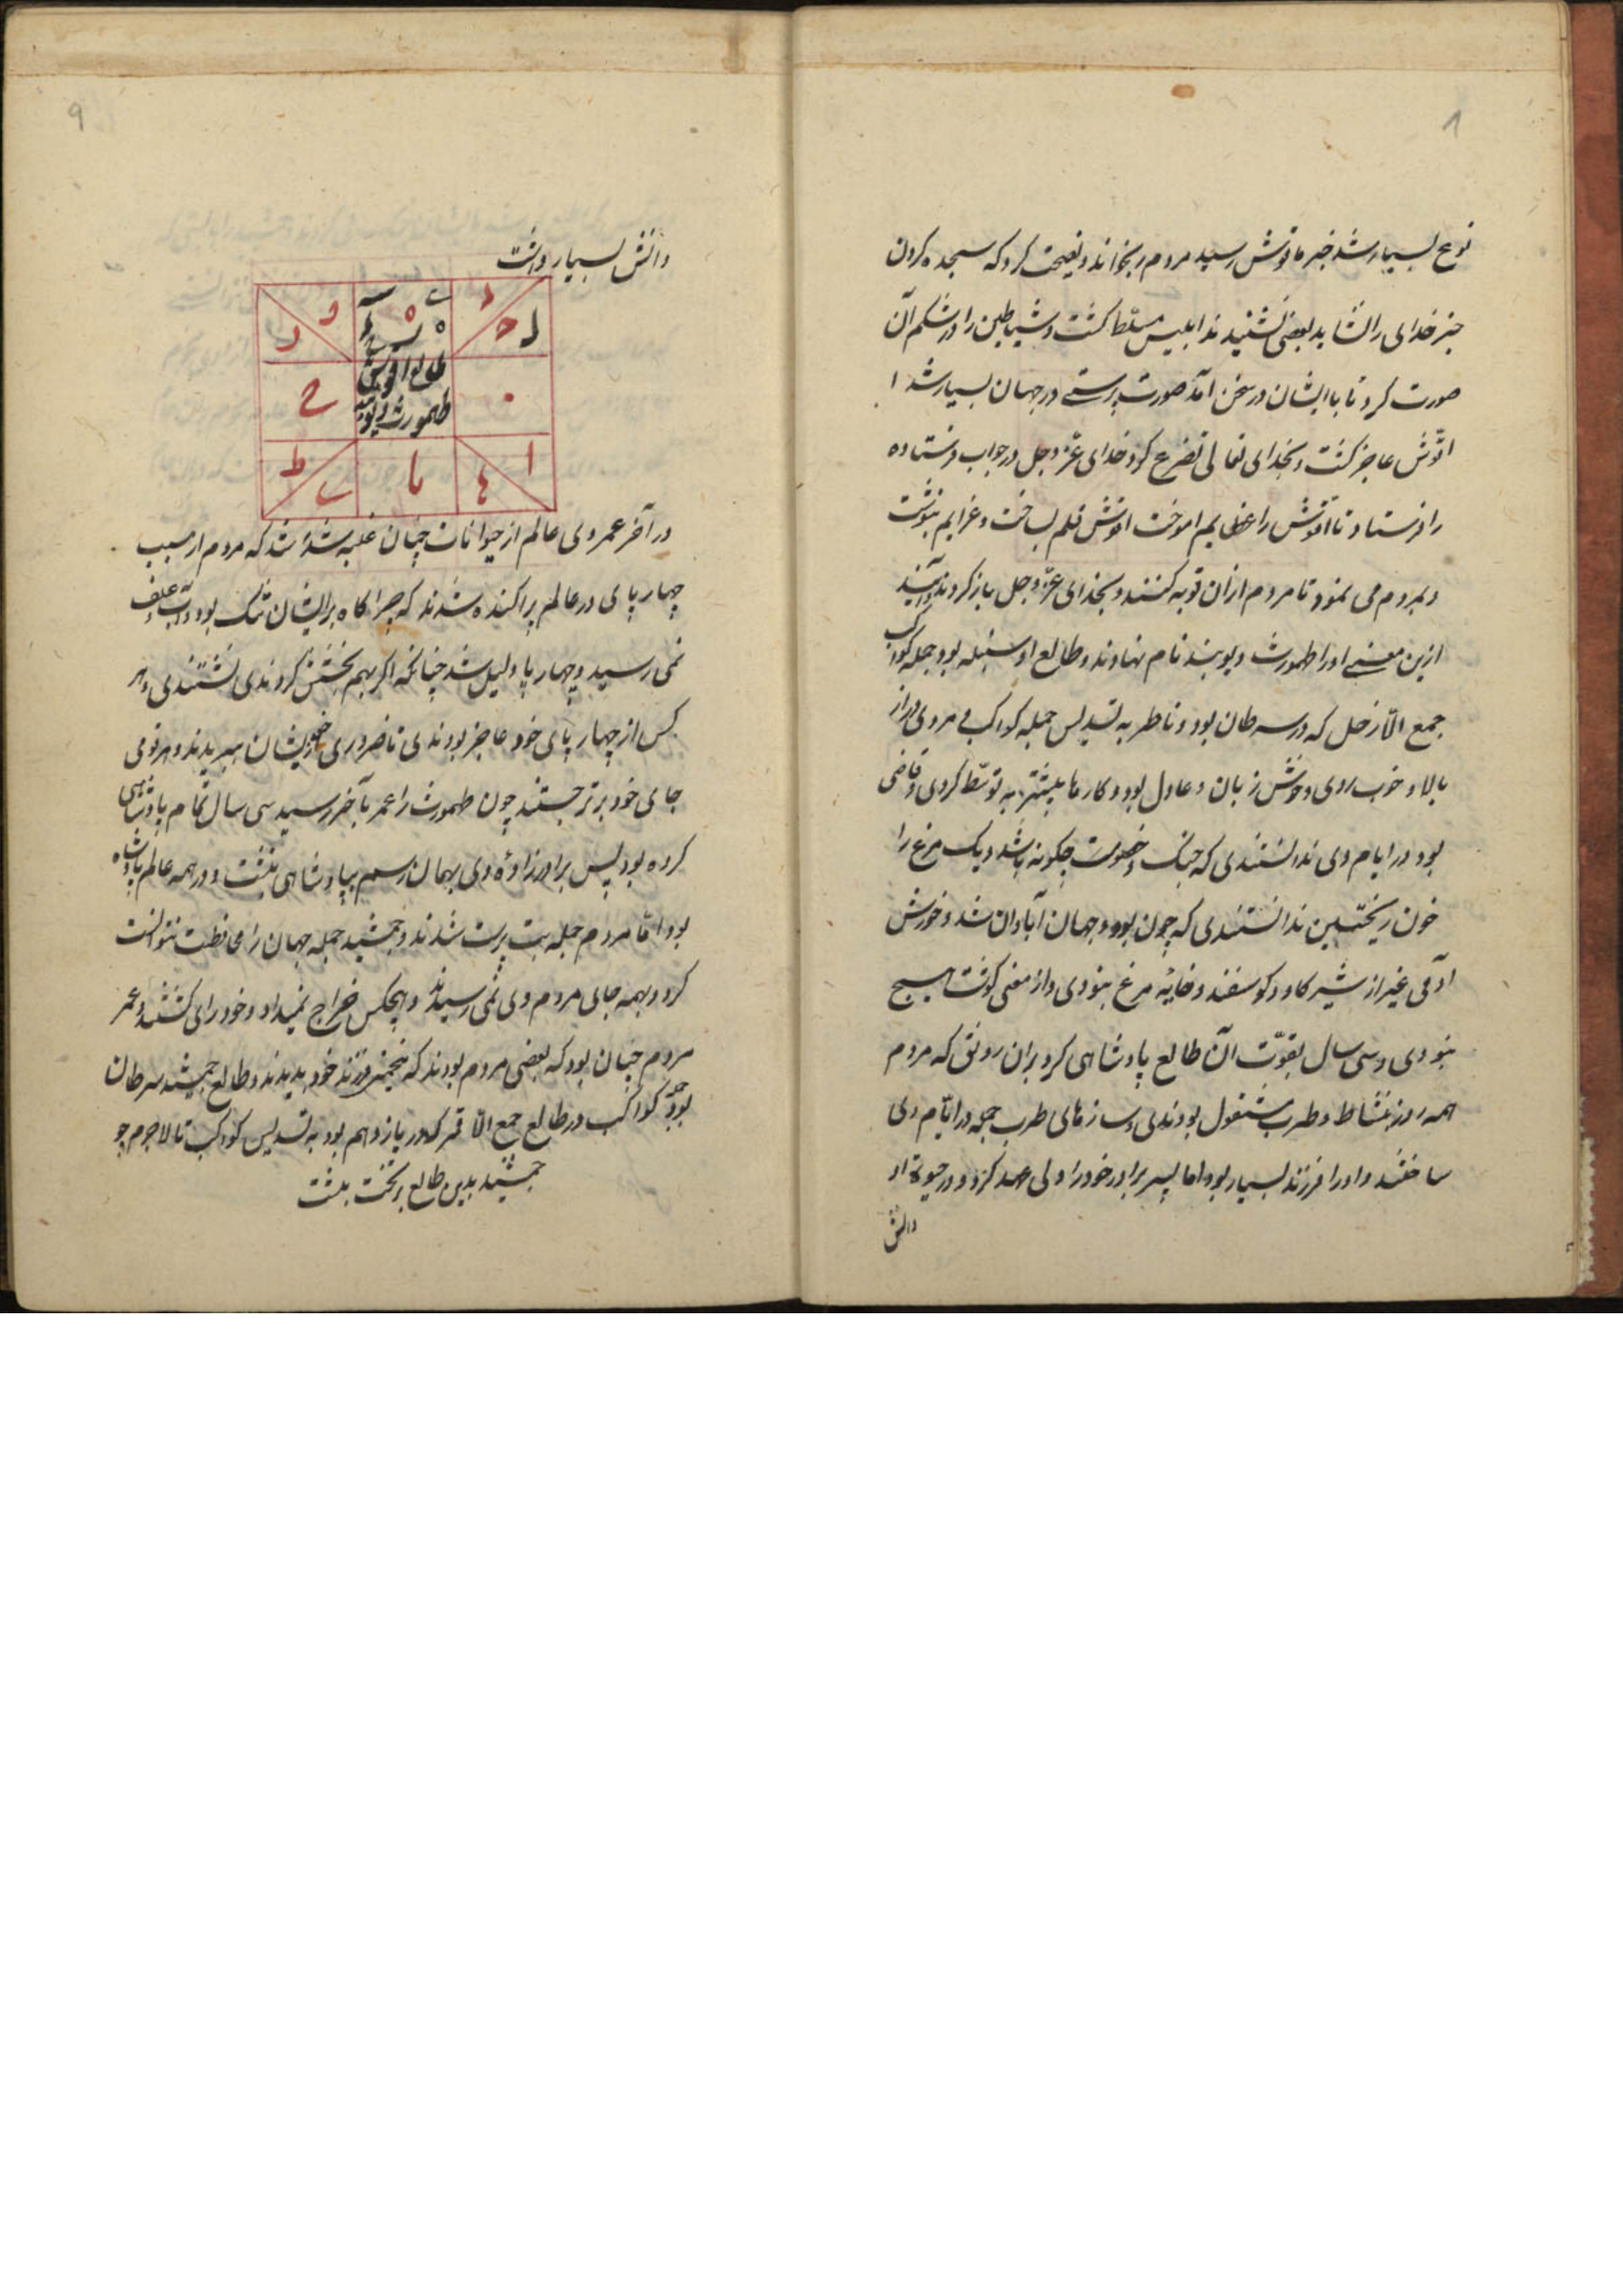 ۸
نوع بسیار شد خبر باوتش رسید مردم را بخواند و نصیحت کرد که سجده کردن
جز خدای را نشاید بعضی نشنیدند ابلیس مسلط کشت و شیاطین را در شکم آن
صورت کرد تا با ایشان در سخن آمد صورت پرستی در جهان بسیار شد ا
اوتش عاجز کشت و بخدای تعالی تضرع کرد خدای عزّ و جل در جواب فرستاده
را فرستاد تا اوتش را عزایم اموخت اوتش قلم بساخت و عزایم بنوشت
و بمردم می نمود تا مردم ازان توبه کنند و بخدای عزّ و جل باز کردند
ازین معنی او را طهمورث دیوبند نام نهادند و طالع او سنبله بود جمله کواکب
جمع الّا زحل که در سرطان بود و ناظر به تسدیس جمله کواکب مردی دراز
بالا و خوب روی و خوش زبان و عادل بود و کارها بیشتر به توسّط کردی و قاضی
بود در ایام وی ندانستندی که جنک و خصومت چکونه باشد و یک مرغ را
خون ریختن ندانستندی که چون بود و جهان آبادان شد و خورش
آدمی غیر از شیر کاو و کوسفند و خایه مرغ نبودی و از معنی کوشت هیچ
نبودی و سی سال بقوّت آن طالع پادشاهی کرد بران رونق که مردم
همه روز بنشاط و طرب مشغول بودندی و سازهای طرب جمله در ایّام وی
ساختند و او را فرزند بسیار بود اما پسر برادر خود را ولی عهد کرد و در حیوة او
دانش
۹
دانش بسیار داشت
طالع اوتش
طهمورث دیوبند
در آخر عمر وی عالم از حیوانات چنان غلبه شد که مردم از سبب
چهارپای در عالم پراکنده شدند که چراکاه بر ایشان تنک بود و آب و علف
نمی رسید و چهارپا دلیل شد چنانکه اکر بهم بخشش کردندی نستندی و هر
کس از چهارپای خود عاجز بودندی تا ضروری خون ایشان میریدند و هر قومی
جای خود برتر جستند چون طهمورث را عمر بآخر رسید سی سال تمام پادشاهی
کرده بود پس برادرزاده وی بهمان رسم بپادشاهی بنشت و در همه عالم پادشاه
بود امّا مردم جمله بت پرست شدند و جمشید جمله جهان را محافظت نتوانست
کرد و بهمه جای مردم وی نمی رسید و هیچکس خراج نمیداد و خودرای کشتند و عمر
مردم چنان بود که بعضی مردم بودند که پنجم فرزند خود بدیدند و طالع جمشید سرطان
بود کواکب در طالع جمع الّا قمر که در یازدهم بود به تسدیس کواکب تا لاجرم چو
جمشید بدین طالع بر تخت بنشت